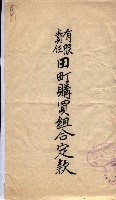 有限責任
田町購買組合定款